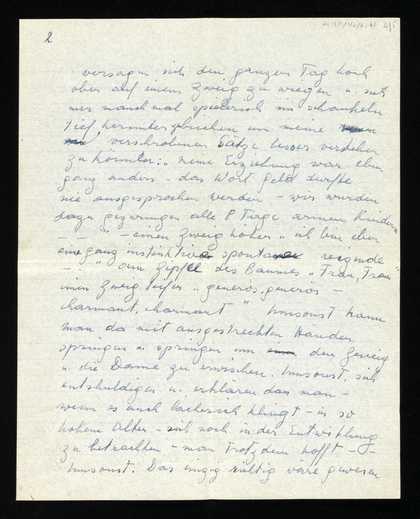 2
versagen sich den ganzen Tag hoch
oben auf einem Zweig zu wiegen u. sich
nur manchmal spielerisch im schaukeln
tief herunterzubeugen um meine
verschrobenen Sätze besser verstehen
zu können: meine Erziehung war eben
ganz anders - das Wort Geld durfte
nie ausgesprochen werden - wir wurden
dazu gezwungen alle Tage armen Kindern
- - " - einen Zweig höher " ich bin eben
eine ganz instinktive spontane
- " am Zipfel des Baumes "
einen Zweig tiefer " generös, generös -
charmant, charmant " Umsonst kann
man da mit ausgestreckten Händen
springen u. springen um den Zweig
u. die Dame zu erwischen. Umsonst, sich
entschuldigen u. erklären dass man -
wenn es auch lächerlich klingt - in so
hohem Alter - sich noch in der Entwicklung
zu betrachten - man trotzdem hofft -
Umsonst. Das einzig gültig wäre gewesen